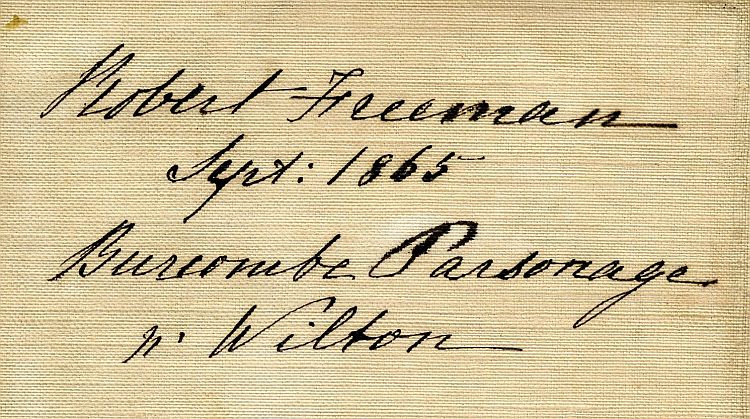 Robert Freeman
Sept: 1865
Burcombe Parsonage
nr Wilton